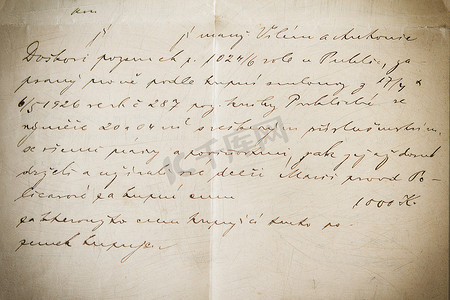 kou
jí jí manž. Vilém a
Doškovi pozemek p. 1024/6 role v Puklic, za-
psaný prvně podle kupní smlouvy z 17/4 a
6/5 1926 ve vl. č 287 poz. knihy Puklické ve
výměře 20a04 m² s veškerým příslušenstvím,
se všemi právy a povinnostmi, jak jej až dosud
drželi a užívali své dceři Marii provd. Po-
za kupní cenu
1000 K.
cenu kupující tento po-
zemek kupuje.
千库网